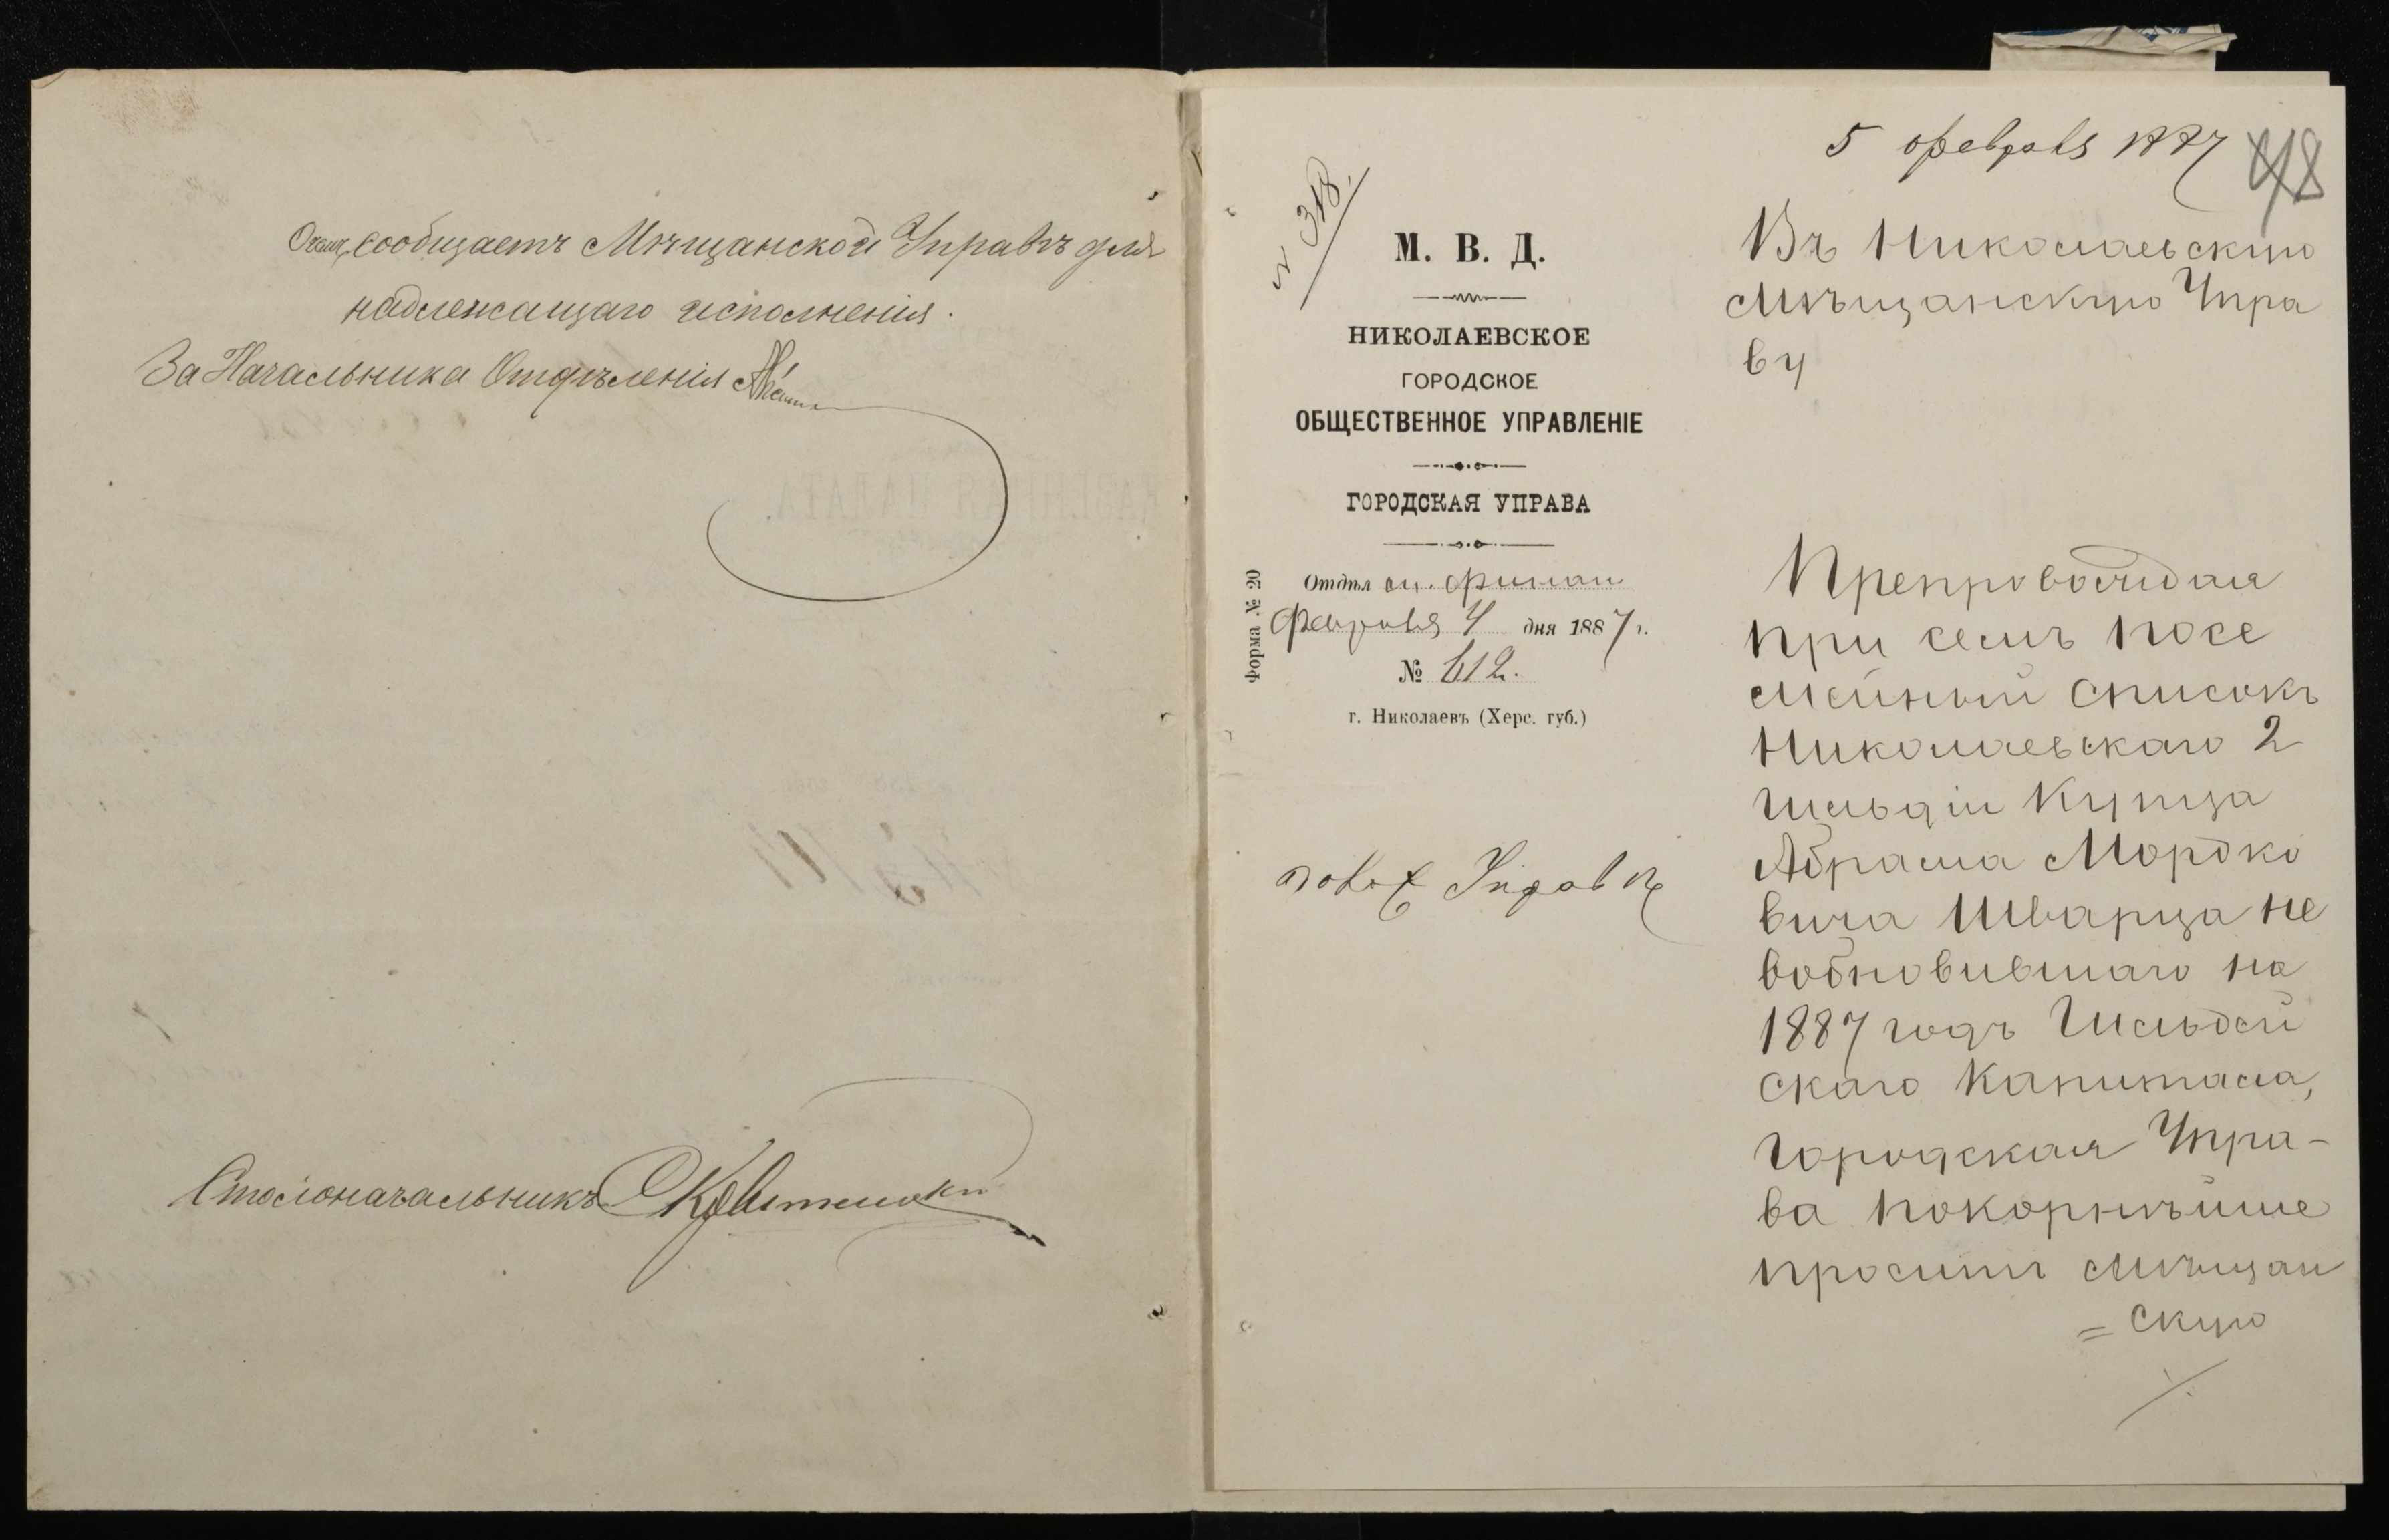 О чемъ сообщаетъ Мѣщанской Управѣ для
надлежащаго исполненія.
За Начальника Отдѣленія
Столоначальникъ
5 февраля 1887
48
№ 318.
М. В. Д.
НИКОЛАЕВСКОЕ
ГОРОДСКОЕ
ОБЩЕСТВЕННОЕ УПРАВЛЕНІЕ
ГОРОДСКАЯ УПРАВА
Отдѣл
Февраля 4 дня 1887 г.
№ 612.
г. Николаевъ (Херс. губ.)
Форма № 20
Управѣ
Въ Николаевскую
Мѣщанскую Упра
ву
Препровождая
при семъ посе
мейный списокъ
Николаевскаго 2
гильдіи Купца
Абрама Мордко
вича Шварца не
возновившаго на
1887 годъ Гильдей
скаго Капитала,
Городская Упра-
ва покорнѣйше
проситъ Мѣщан
= скую